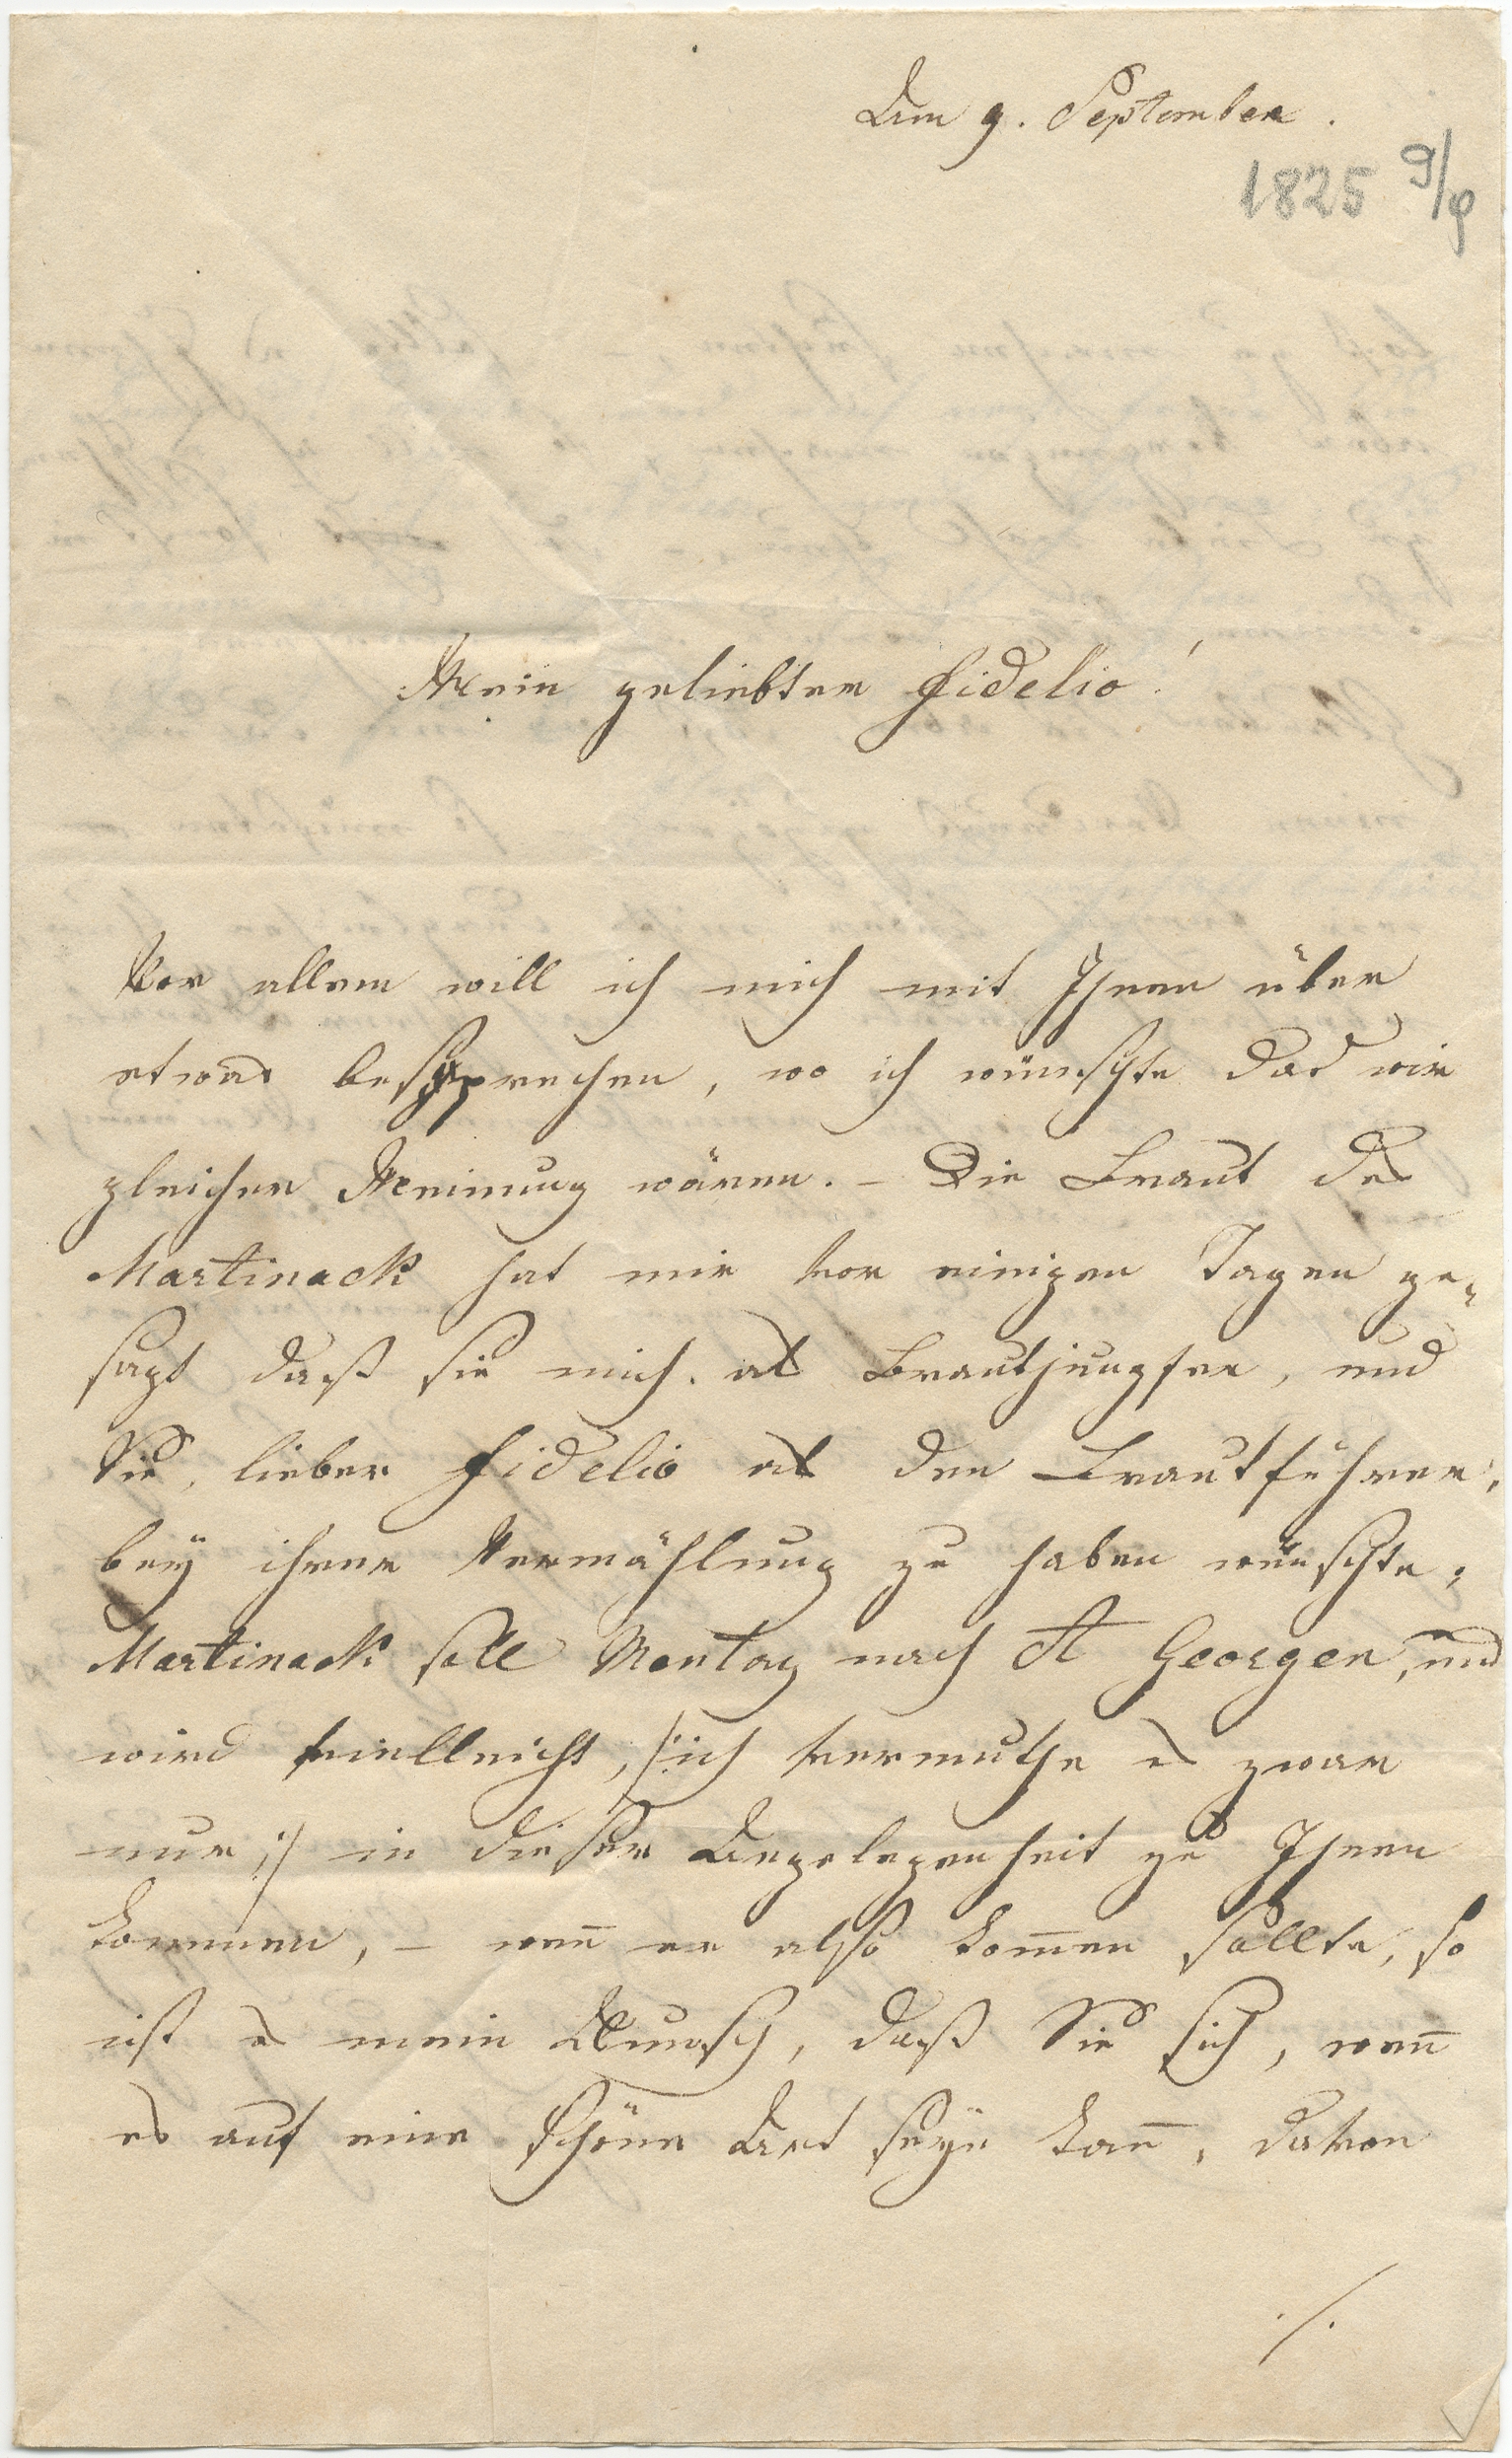 Am 9. September.
1825 9/9
Mein geliebter Fidelio!
Vor allem will ich mich mit Ihnen über
etwas besprechen, wo ich wünschte das wir
gleicher Meinung wären. – Die Braut des
Martinack hat mir vor einigen Tagen ge-
sagt daß sie mich als Brautjungfer, und
Sie, lieber Fidelio als den Brautführer,
bey ihrer Vermählung zu haben wünschte;
Martinack soll Montag nach St Georgen, und
wird vielleicht, /:ich vermuthe es zwar
nur;/ in dieser Angelegenheit zu Ihnen
kommen, – weñ er also kom̄en sollte, so
ist es mein Wunsch, daß Sie sich, weñ
es auf eine schöne Art seyn kañ, davon
./.